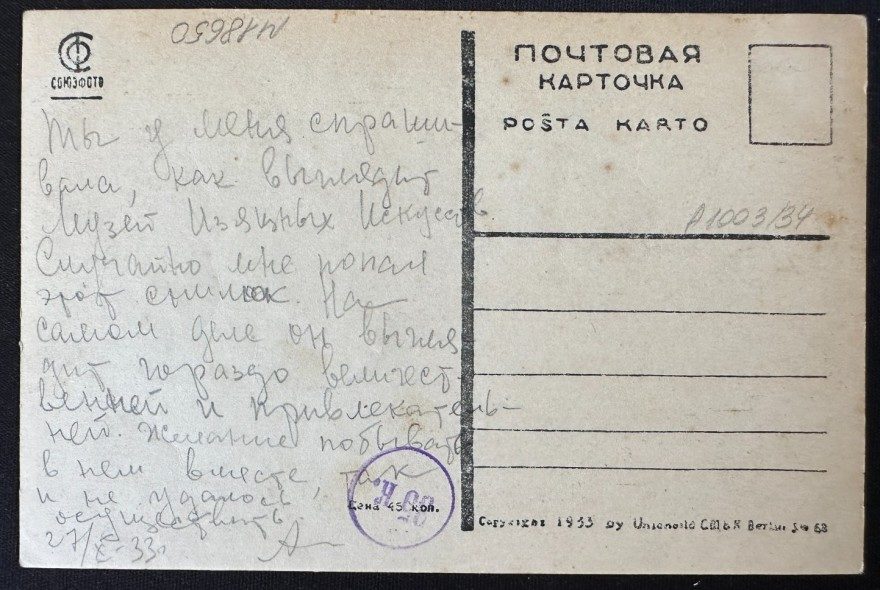 М18650
СОЮЗФОТО
Ты у меня спраши-
вала, как выглядит
Музей Изящных Искусств.
Случайно мне попал
этот снимок. На
самом деле он выгля-
дит гораздо величест-
венней и привлекатель-
ней. Желание побывать
в нем вместе, так
и не удалось
осуществить.
27/X-33г.
А
Цена 45 коп.
ПОЧТОВАЯ
КАРТОЧКА
POŜTA KARTO
A1003/34
Copyright 1933 by Unionbild GmbH Berlin SW 68